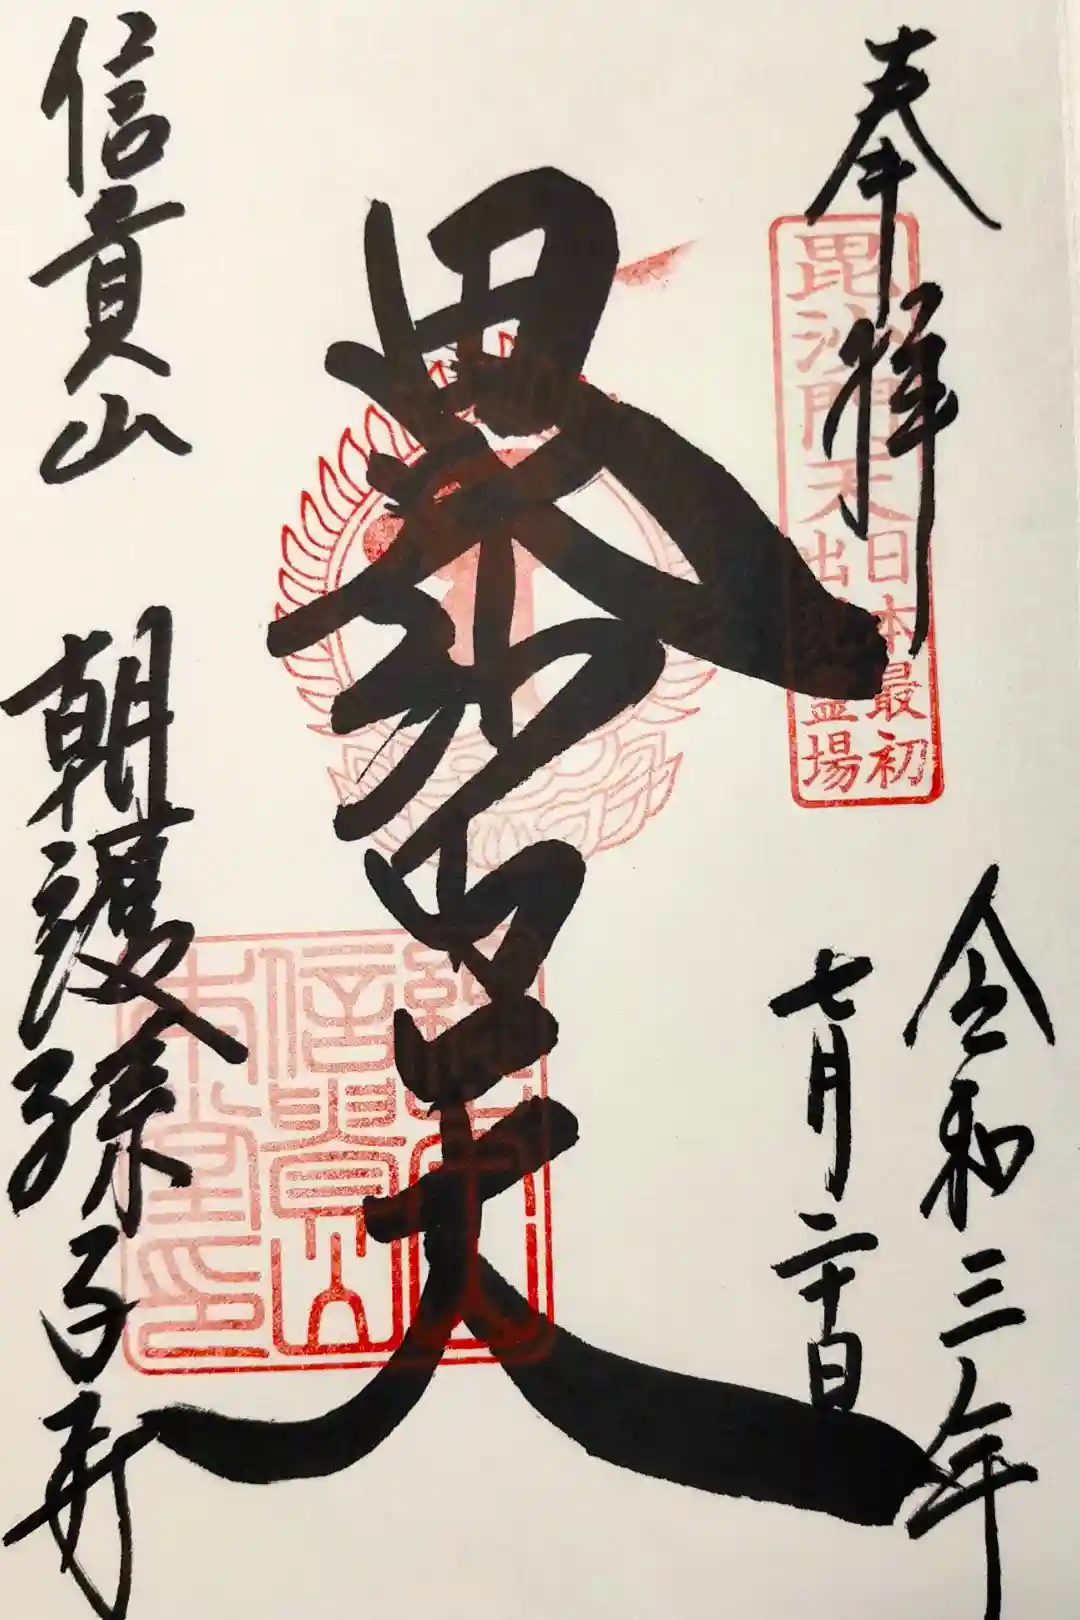 奉拝
毘沙門天
日本最初
出現霊場
令和三年
七月二十日
毘沙門天
信貴山
朝護孫子寺
信貴山
本堂印